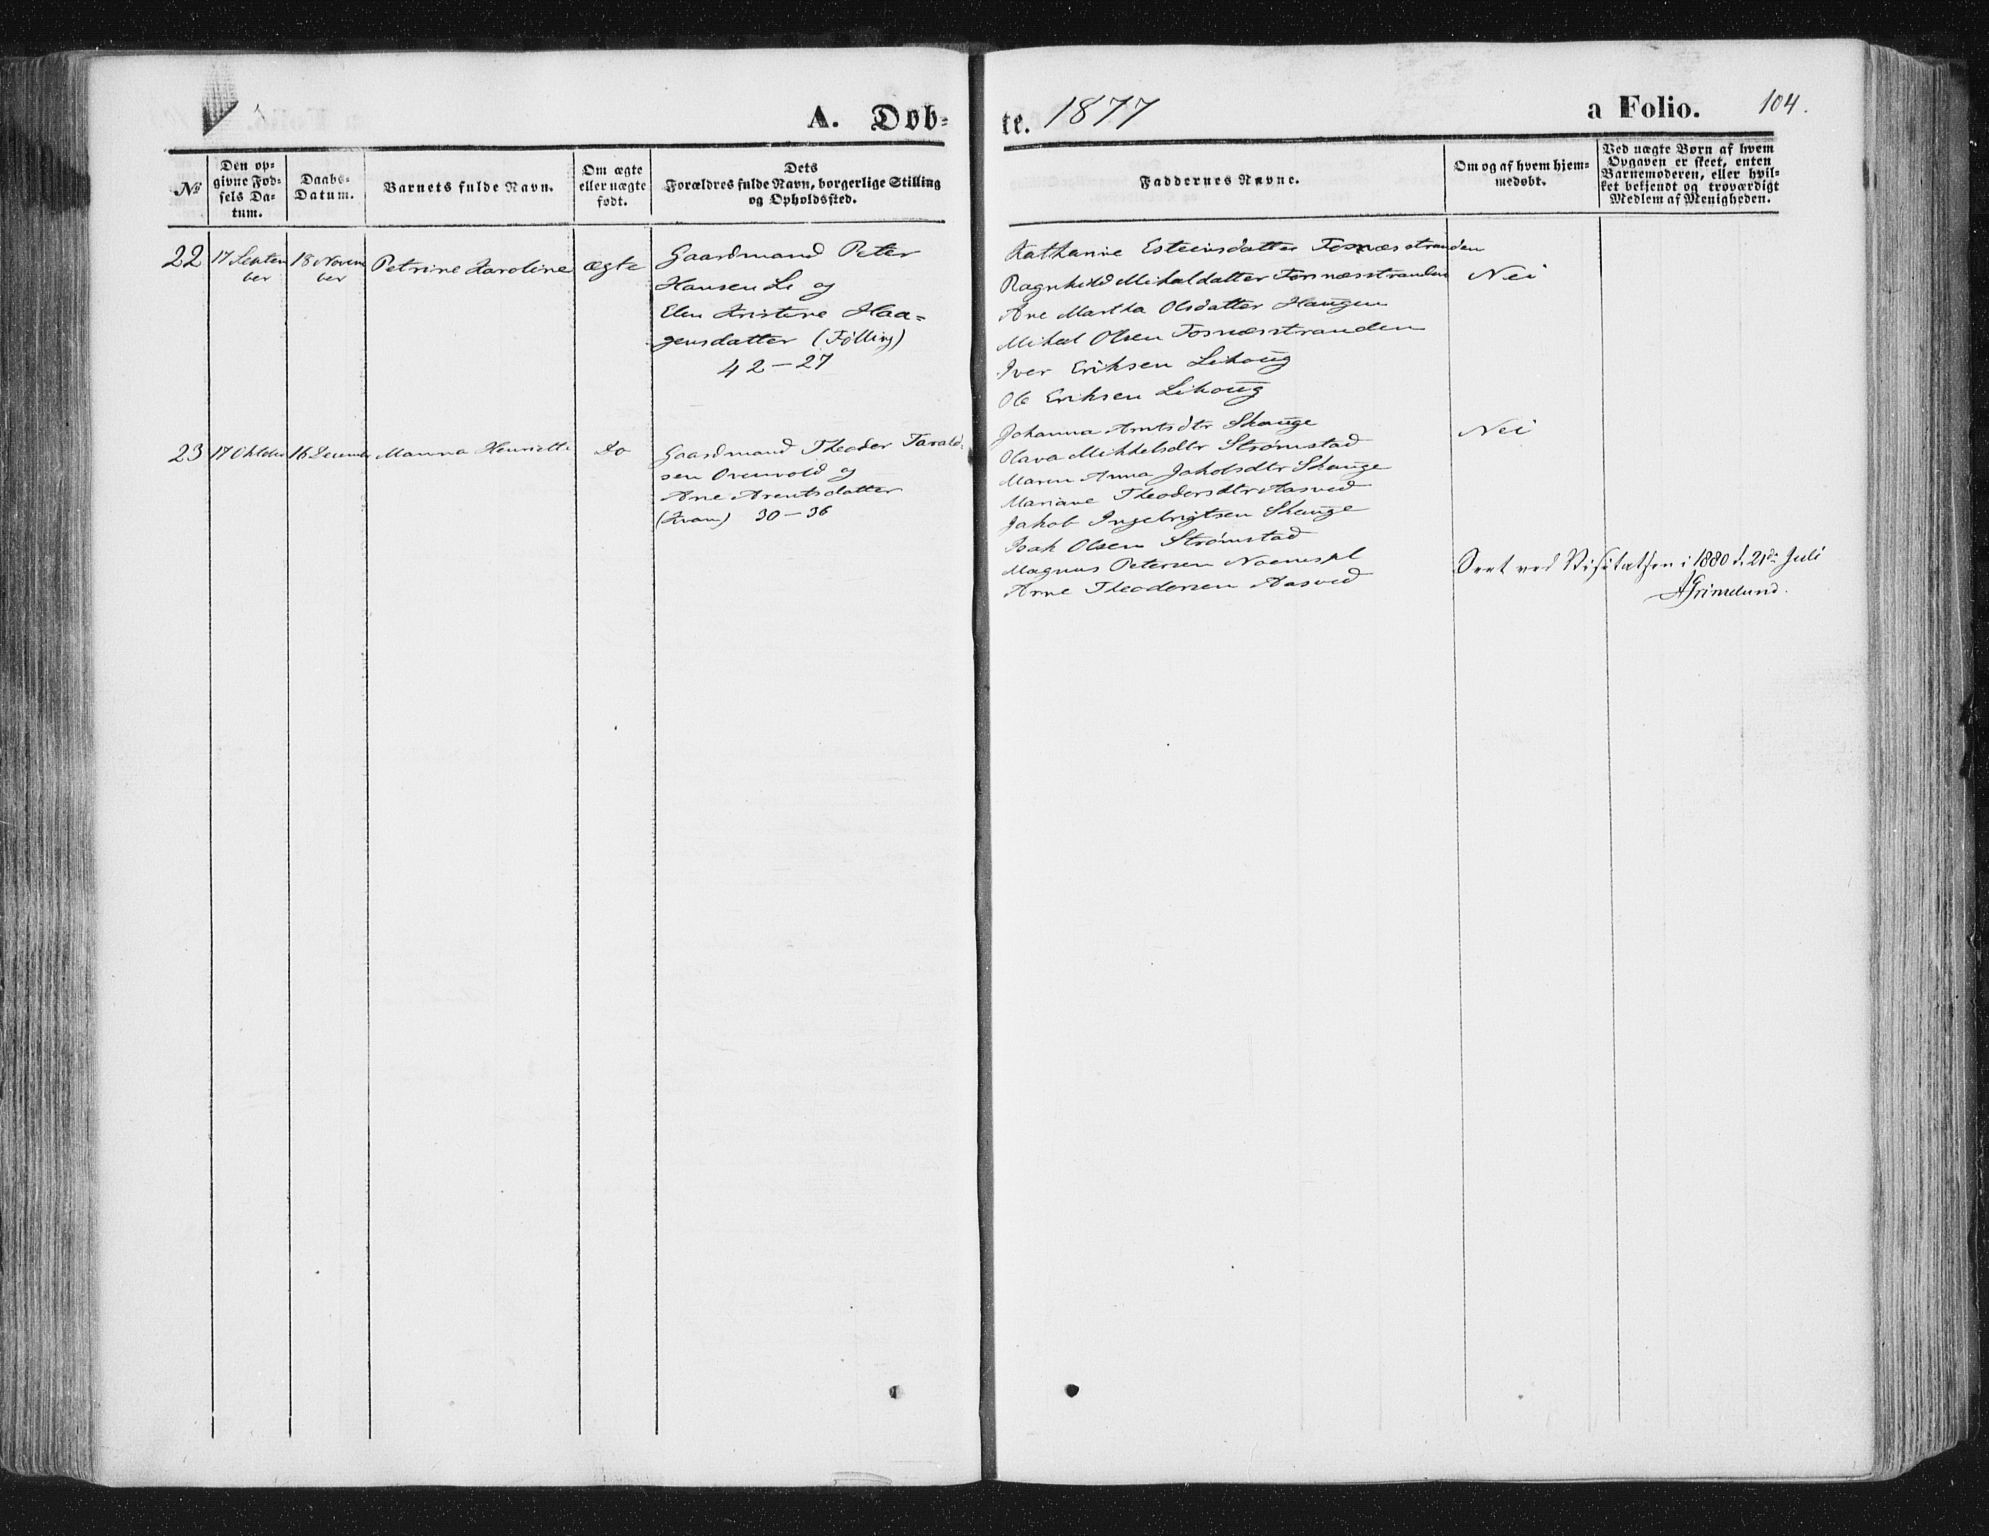 A. Døb-
te. 1877
a Folio. 104.
No
Den op-
givne Fød-
sels Da-
tum.
Daabs-
Datum.
Barnets fulde Navn.
Om ægte
eller uægte
født.
Dets
Forældres fulde Navn, borgerlige Stilling
og Opholdssted.
Faddernes Navne.
Om og af hvem hjem-
medøbt.
Ved uægte Børn af hvem
Opgaven er skeet, enten
Barnemoderen, eller hvil-
ket bekjendt og troværdigt
Medlem af Menigheden.
22
17 Septem
ber
18 Novem
ber
Petrine Karoline
ægte
Gaardmand Peter
Hansen Li og
Elen Kristine Haa-
gensdatter (Følling)
42-27
Kathanie Esteinsdatter Fosnæsstranden
Ragnhild Mikaldatter Fosnæsstranden
Ane Martha Olsdatter Haugen
Mikal Olsen Fosnæsstranden
Iver Eriksen Lihoug
Ole Eriksen Lihoug
Nei
23
17 Oktober
16 December
Manna Henriette
Do
Gaardmand Theodor Tarald-
sen Overvold og
Ane Arentsdatter
(Kvam) 30-36
Johanna Arntsdtr Skauge
Olava Mikkelsdtr Strømstad
Maren Anna Jakobsdtr Skauge
Mariane Theodorsdtr Aasved
Jakob Ingebrigtsen Skauge
Isak Olsen Strømstad
Magnus Petersen
Arne Theodorsen Aasved
Nei
Seet ved Visitatsen i 1880 d. 21de Juli
AGrimelund.